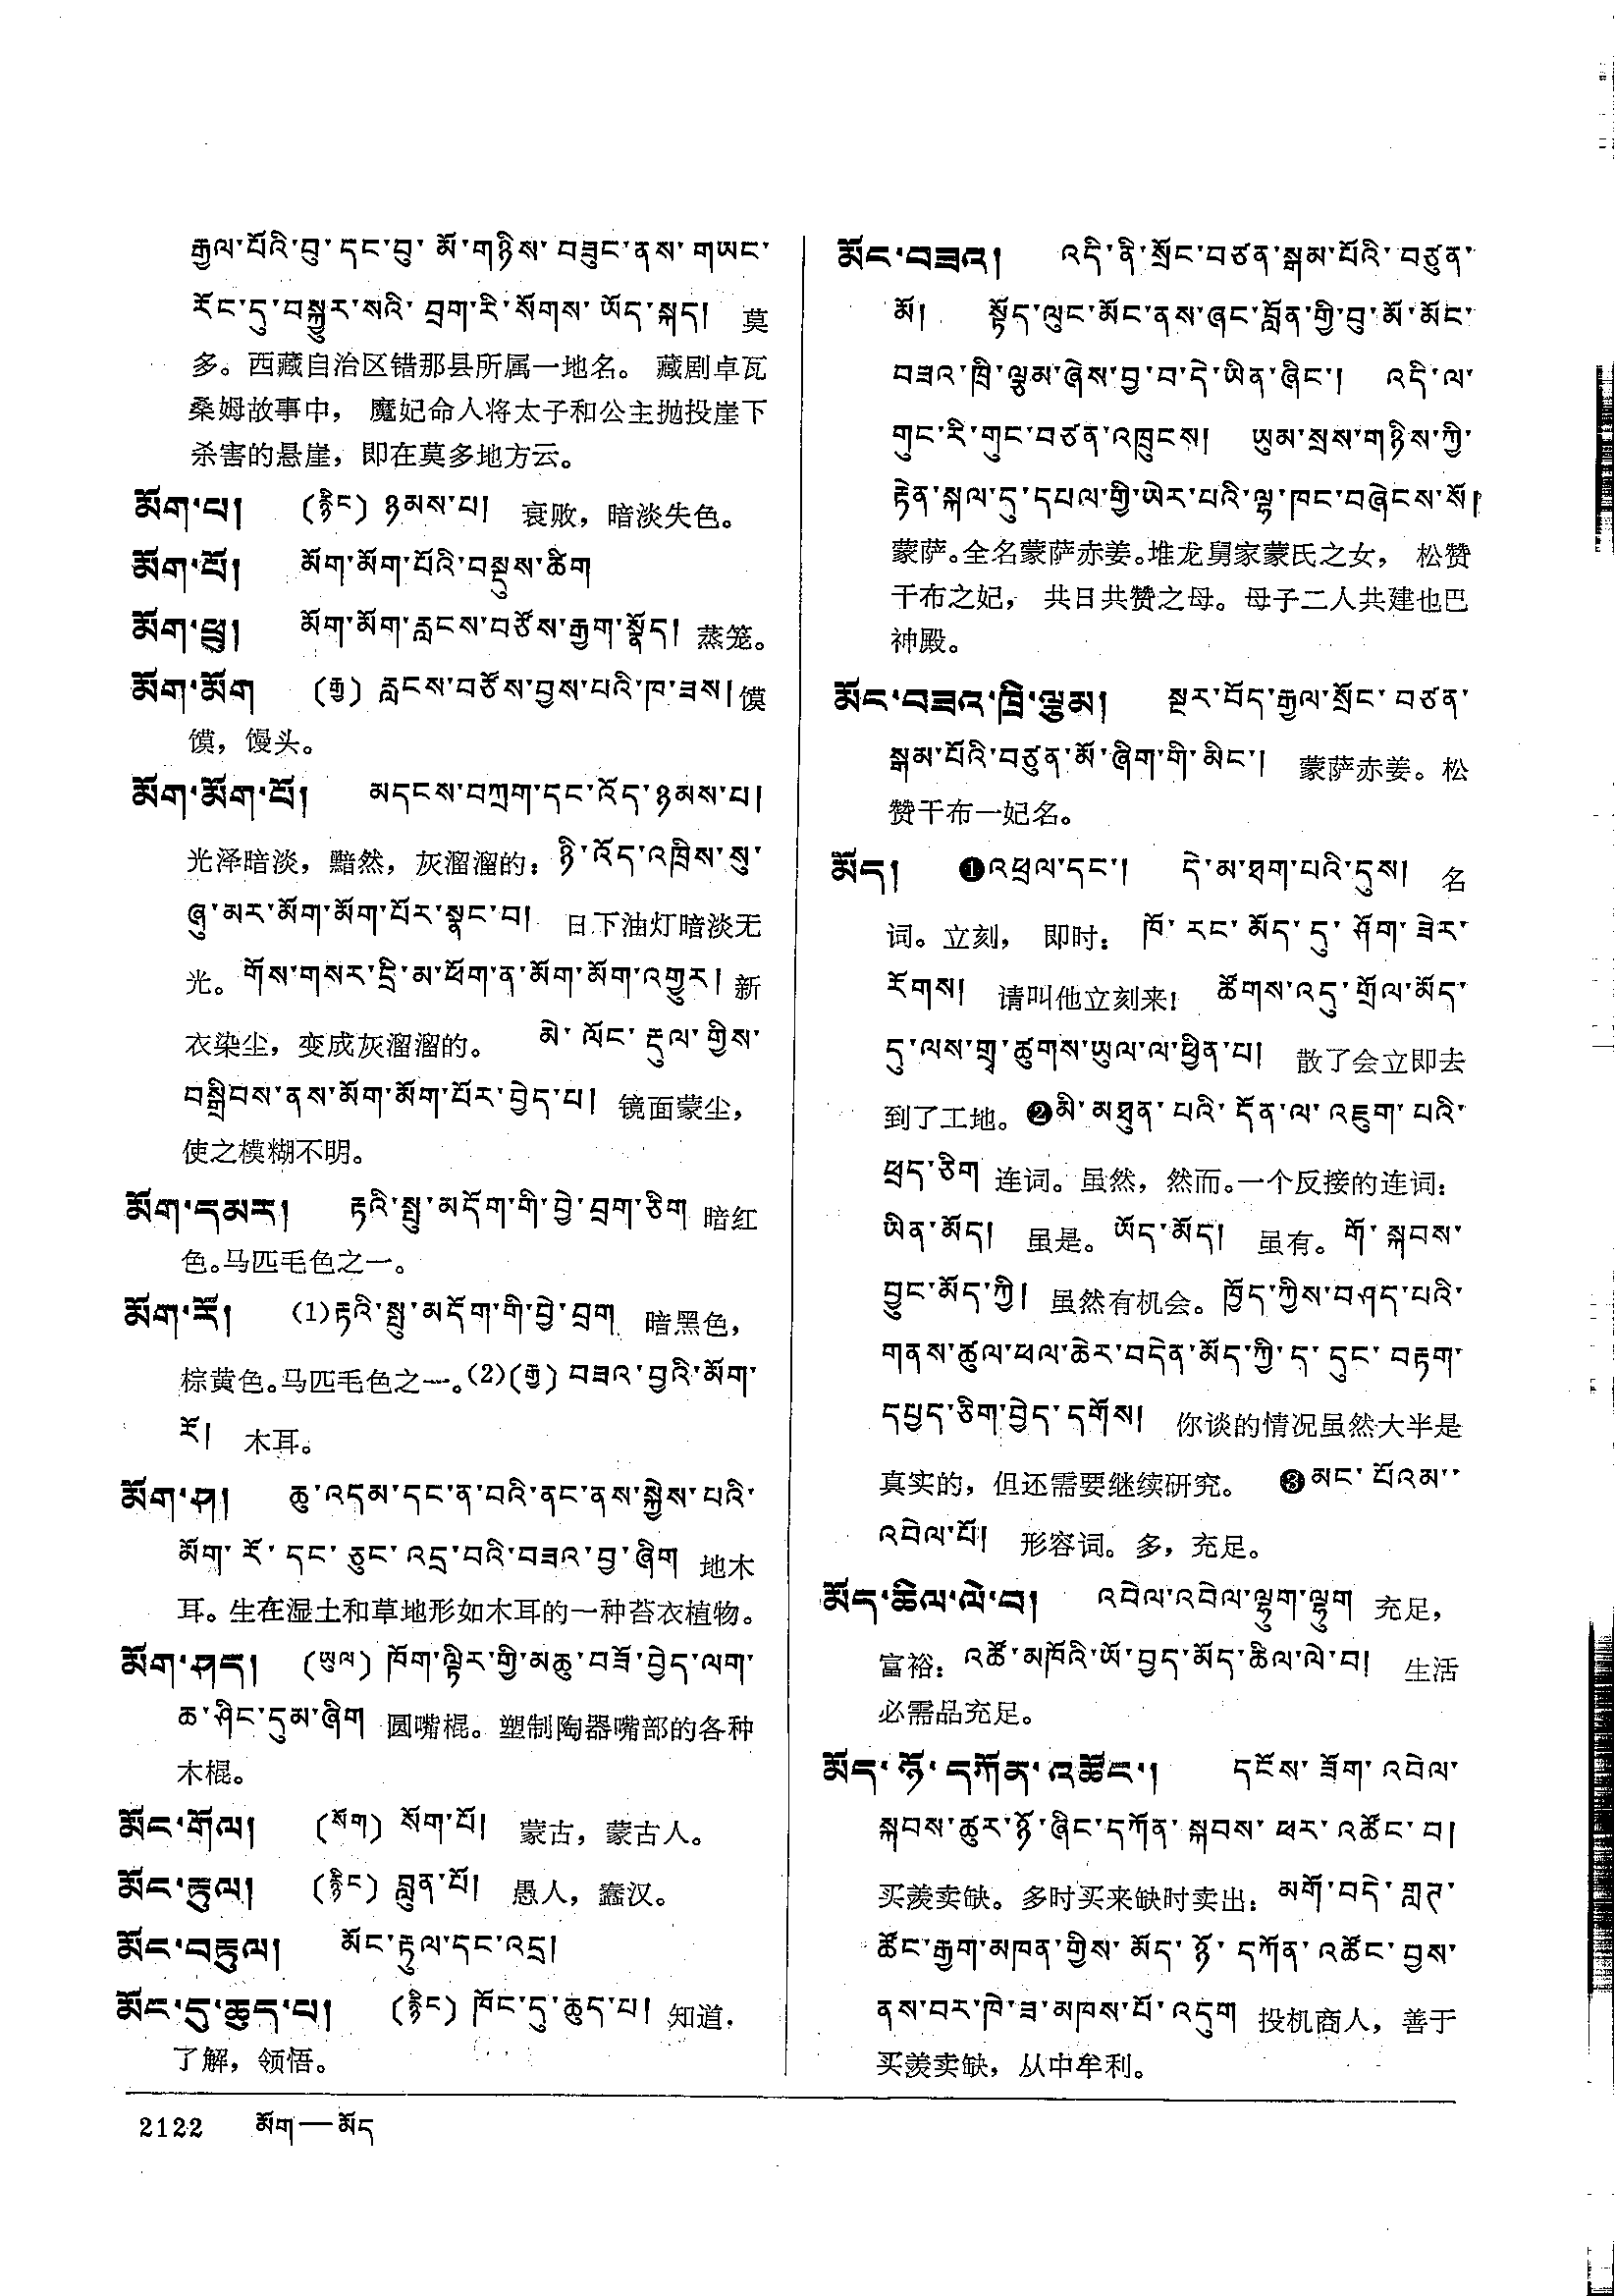 རྒྱལ་པོའི་བུ་དང་བུ་མོ་གཉིས་བཟུང་ནས་གཡང་
རོང་དུ་བསྐྱུར་སའི་བྲག་རི་སོགས་ཡོད་སྐད། 莫
多。西藏自治区错那县所属一地名。藏剧卓瓦
桑姆故事中，魔妃命人将太子和公主抛投崖下
杀害的悬崖，即在莫多地方云。
མོག་པ། (རྙིང) ཉམས་པ། 衰败，暗淡失色。
མོག་པོ། མོག་མོག་པོའི་བསྡུས་ཚིག
མོག་ཕྲུ། མོག་མོག་རླངས་བཙོས་རྒྱག་སྣོད། 蒸笼。
མོག་མོག (རྒྱ) རླངས་བཙོས་བྱས་པའི་ཁ་ཟས། 馍
馍，馒头。
མོག་མོག་པོ། མདངས་བཀྲག་དང་འོད་ཉམས་པ།
光泽暗淡，黯然，灰溜溜的：ཉི་འོད་འཁྲིས་སུ་
ཞུ་མར་མོག་མོག་པོར་སྣང་བ། 日下油灯暗淡无
光。གོས་གསར་དྲི་མ་ཕོག་ན་མོག་མོག་འགྱུར། 新
衣染尘，变成灰溜溜的。 མེ་ལོང་རྡུལ་གྱིས་
བསྒྲིབས་ནས་མོག་མོག་པོར་བྱེད་པ། 镜面蒙尘，
使之模糊不明。
མོག་དམར། རྟའི་སྤུ་མདོག་གི་བྱེ་བྲག་ཅིག 暗红
色。马匹毛色之一。
མོག་རོ། (1)རྟའི་སྤུ་མདོག་གི་བྱེ་བྲག 暗黑色，
棕黄色。马匹毛色之一。(2)(རྒྱ) བཟའ་བྱའི་མོག་
རོ། 木耳。
མོག་ཤ། ཆུ་འདམ་དང་ན་བའི་ནང་ནས་སྐྱེས་པའི་
མོག་རོ་དང་ཅུང་འདྲ་བའི་བཟའ་བྱ་ཞིག 地木
耳。生在湿土和草地形如木耳的一种苔衣植物。
མོག་ཤད། (ཡུལ) ཁོག་ལྟིར་གྱི་མཆུ་བཟོ་བྱེད་ལག་
ཆ་ཤིང་དུམ་ཞིག 圆嘴棍。塑制陶器嘴部的各种
木棍。
མོང་གོལ། (སོག) སོག་པོ། 蒙古，蒙古人。
མོང་རྟུལ། (རྙིང) བླུན་པོ། 愚人，蠢汉。
མོང་བརྟུལ། མོང་རྟུལ་དང་འདྲ།
མོང་དུ་ཆུད་པ། (རྙིང) ཁོང་དུ་ཆུད་པ། 知道，
了解，领悟。
མོང་བཟའ། འདི་ནི་སྲོང་བཙན་སྒམ་པོའི་བཙུན་
མོ། སྟོད་ལུང་མོང་ནས་ཞང་བློན་གྱི་བུ་མོ་མོང་
བཟའ་ཁྲི་ལྕམ་ཞེས་བྱ་བ་དེ་ཡིན་ཞིང་། འདི་ལ་
གུང་རི་གུང་བཙན་འཁྲུངས། ཡུམ་སྲས་གཉིས་ཀྱི་
རྟེན་སྐལ་དུ་དཔལ་གྱི་ཡེར་པའི་ལྷ་ཁང་བཞེངས་སོ།
蒙萨。全名蒙萨赤姜。堆龙舅家蒙氏之女，松赞
干布之妃，共日共赞之母。母子二人共建也巴
神殿。
མོང་བཟའ་ཁྲི་ལྕམ། སྔར་བོད་རྒྱལ་སྲོང་བཙན་
སྒམ་པོའི་བཙུན་མོ་ཞིག་གི་མིང་། 蒙萨赤姜。松
赞干布一妃名。
མོད། ❶འཕྲལ་དང་། དེ་མ་ཐག་པའི་དུས། 名
词。立刻，即时：ཁོ་རང་མོད་དུ་ཤོག་ཟེར་
རོགས། 请叫他立刻来！ ཚོགས་འདུ་གྲོལ་མོད་
དུ་ལས་གྲྭ་ཚུགས་ཡུལ་ལ་ཕྱིན་པ། 散了会立即去
到了工地。❷མི་མཐུན་པའི་དོན་ལ་འཇུག་པའི་
ཕྲད་ཅིག 连词。虽然，然而。一个反接的连词：
ཡིན་མོད། 虽是。ཡོད་མོད། 虽有。གོ་སྐབས་
བྱུང་མོད་ཀྱི། 虽然有机会。ཁྱོད་ཀྱིས་བཤད་པའི་
གནས་ཚུལ་ཕལ་ཆེར་བདེན་མོད་ཀྱི་ད་དུང་བརྟག་
དཔྱད་ཅིག་བྱེད་དགོས། 你谈的情况虽然大半是
真实的，但还需要继续研究。 ❸མང་པོའམ་
འབེལ་པོ། 形容词。多，充足。
མོད་ཆིལ་ལེ་བ། འབེལ་འབེལ་ལྷུག་ལྷུག 充足，
富裕：འཚོ་མཁོའི་ཡོ་བྱད་མོད་ཆིལ་ལེ་བ། 生活
必需品充足。
མོད་ཉོ་དཀོན་འཚོང་། དངོས་ཟོག་འབེལ་
སྐབས་ཚུར་ཉོ་ཞིང་དཀོན་སྐབས་ཕར་འཚོང་བ།
买羡卖缺。多时买来缺时卖出：མགོ་བདེ་ཀླད་
ཚོང་རྒྱག་མཁན་གྱིས་མོད་ཉོ་དཀོན་འཚོང་བྱས་
ནས་བར་ཁེ་ཟ་མཁས་པོ་འདུག 投机商人，善于
买羡卖缺，从中牟利。
2122 མོག—མོད